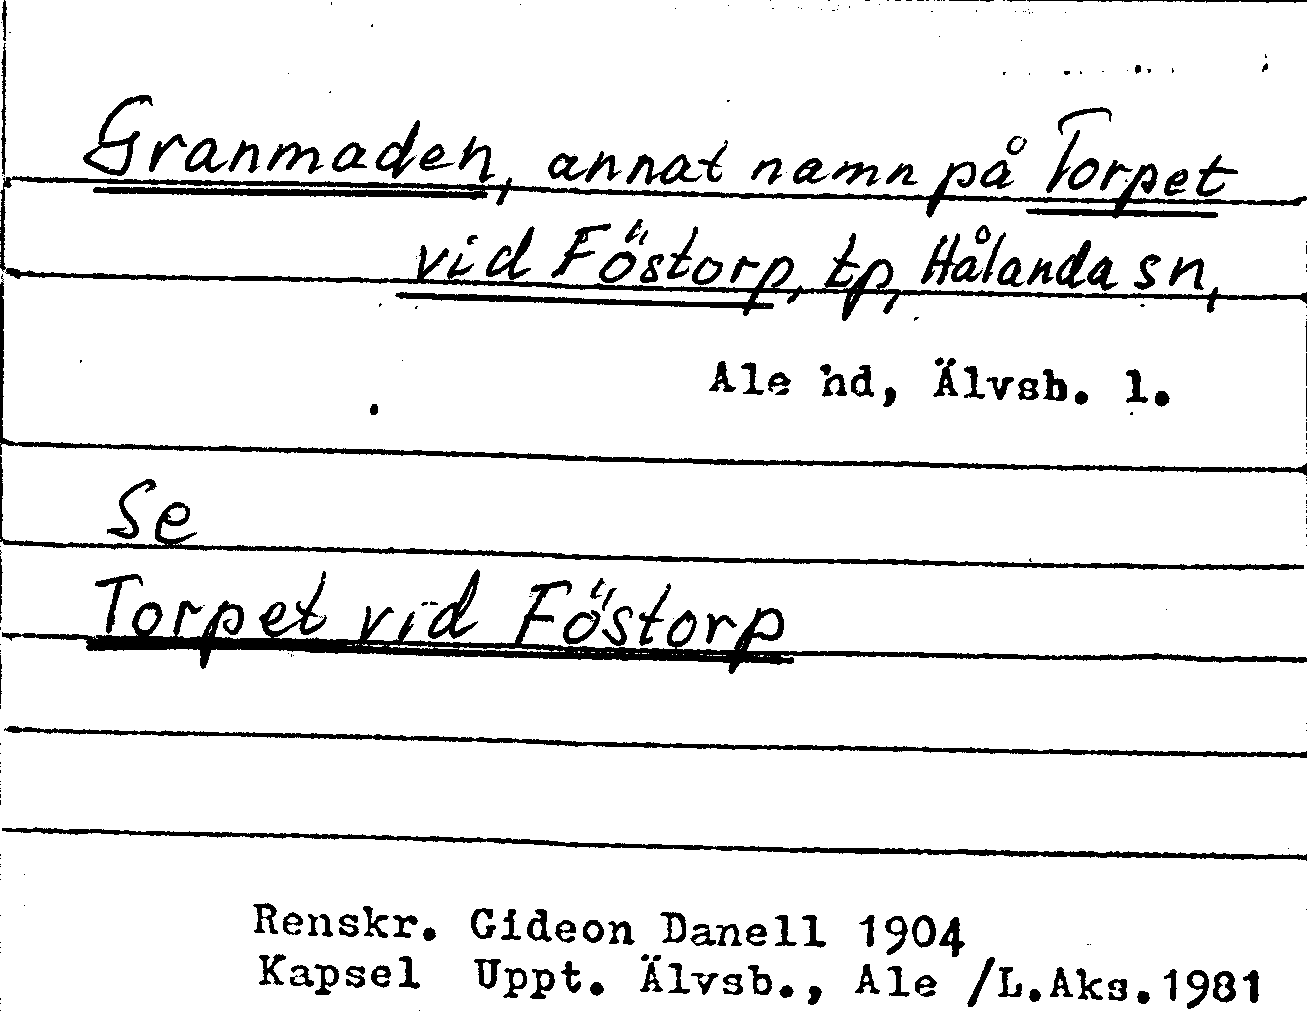 Granmaden, annat namn på Torpet
vid Föstorp, tp, Hålanda sn,
Ale hd, Älvsb. l.
Se
Torpet vid Föstorp
Renskr. Gideon Danell 1904
Kapsel Uppt. Älvsb., Ale /L.Aks.1981